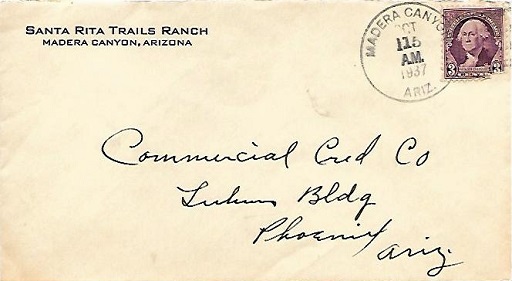 SANTA RITA TRAILS RANCH
MADERA CANYON, ARIZONA
MADERA CANYO
OCT
115
A.M.
1937
ARIZ.
3
Commercial Cred Co
Luhrs Bldg
Phoenix
Ariz.